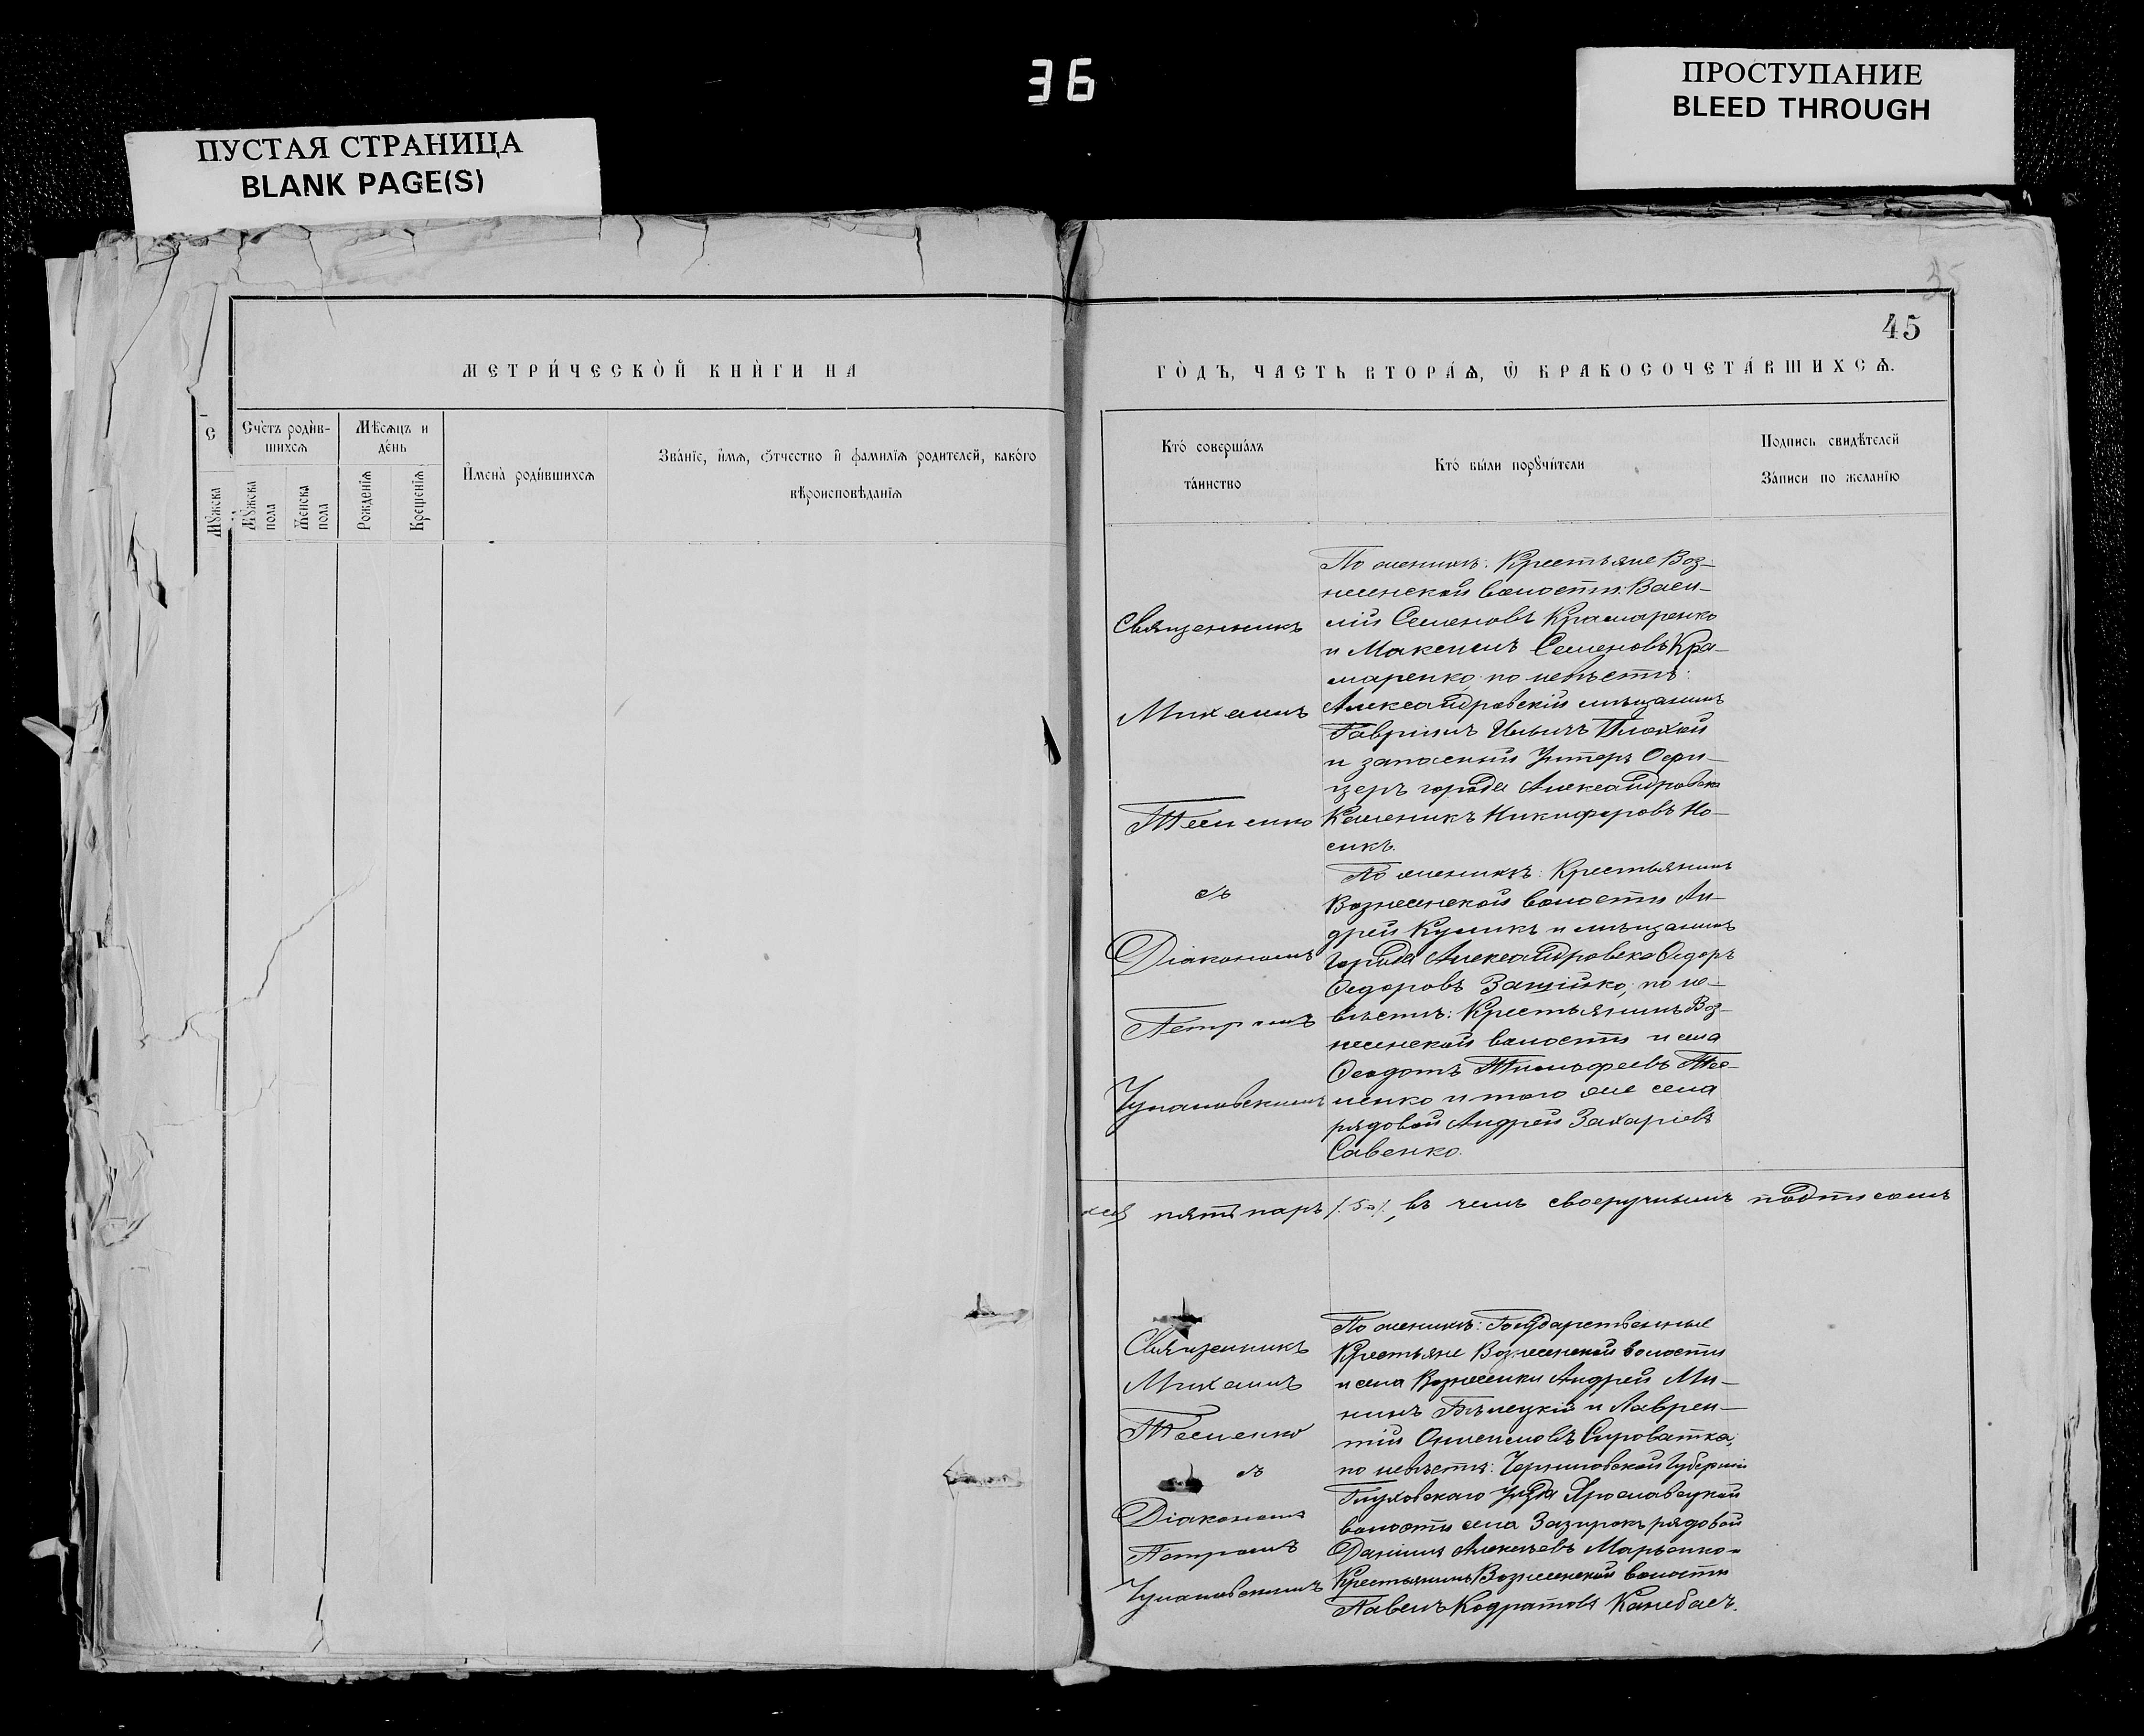 36
ПУСТАЯ СТРАНИЦА
BLANK PAGE(S)
ПРОСТУПАНИЕ
BLEED THROUGH
35
45
МЕТРИ́ЧЕСКОЙ КНИ́ГИ НА
ГО́ДЪ, ЧАСТЬ ВТОРА́Ѧ, Ѽ БРАКОСОЧЕТА́ВШИХСѦ.
С
Мꙋжска
Сче́тъ роди́в-
шихсѧ
Мꙋжска
пола
Женска
пола
Мѣ́сѧцъ и
де́нь
Рожденїѧ
Крещенїѧ
И҆мена̀ роди́вшихсѧ
Зва́нїе, и҆́мѧ, ѻ҆́тчество и҆ фами́лїѧ роди́телей, како́го
вѣроисповѣ́данїѧ
Кто́ соверша́лъ
та́инство
Кто́ бы́ли порꙋчи́тели
Подпись свидѣ́телей
За́писи по жела́нїю
Священникъ
Михаилъ
Тесленко
съ
Діакономъ
Петромъ
По женихѣ: Крестьяне Воз-
несенской волости: Васи-
лій Семеновъ Крамаренко
и Максимъ Семеновъ Кра-
маренко по невѣстѣ:
Александровскій мѣщанинъ
Гавріилъ Ильичъ Плохой
и запасный Унтеръ Офи-
церъ города Александровска
Каленикъ Никифоровъ Но-
сикъ.
По женихѣ: Крестьянинъ
Вознесенской волости Ан-
дрей Куликъ и мѣщанинъ
города Александровска Ѳедоръ
Ѳедоровъ по не-
вѣстѣ: Крестьянинъ Воз-
несенской волости и села
Ѳеодотъ Тимофеевъ Тес-
ленко и того же села
рядовой Андрей Захаріевъ
Савенко.
пять паръ /:5:/, въ чемъ своеручнымъ подписомъ
Священникъ
Михаилъ
Тесленко
съ
Діакономъ
Петромъ
По женихѣ: Государственные
Крестьяне Вознесенской волости
и села Вознесенки Андрей Ми-
нинъ Бѣлецкій и Лаврен-
тій Онисимовъ Сыроватка;
по невѣстѣ: Черниговской Губерніи
Глуховскаго Уѣзда Ярославецкой
волости села рядовой
Даніилъ Алексѣевъ
Крестьянинъ Вознесенской волости
Павелъ Кодратовъ